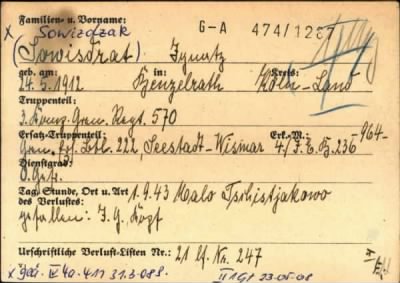 Familien- u. Vorname: G-A 474/1287
x Sowizdrzak
(Sowisdrat) Ignatz
geb. am: in: Kreis:
24.5.1912 Henzelrath Köln-Land
Truppenteil:
3. Komp. Gren. Regt. 570
Ersatz-Truppenteil: Erk.-M.: 964-
Gren. Ers. Btl. 222, Seestadt-Wismar 4/I.E.B. 236
Dienstgrad:
O. Gefr.
Tag, Stunde, Ort u. Art 1.9.43 Malo Tschistjakowo
des Verlustes:
gefallen: I.G. Kopf
Urschriftliche Verlust-Listen Nr.: 21 Lf. Nr. 247
31.3.08
23.05.08